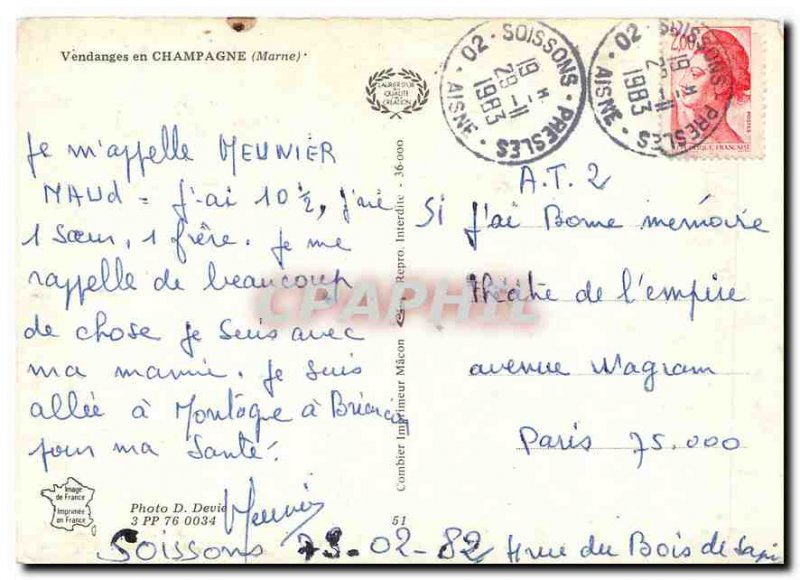 Vendanges en CHAMPAGNE (Marne)
LAURIER D'OR
DE
QUALITÉ
CRÉATION
02 - SOISSONS - PRESLES
19 H
29 -11
1983
AISNE
02 - SOISSONS - PRESLES
19 H
29 -11
1983
AISNE
2,00
POSTES
RÉPUBLIQUE FRANÇAISE
Je m'appelle MEUNIER
MAUD = j'ai 10 1/2, j'ai
1 Sœur, 1 frère. Je me
rappelle de beaucoup
de chose je suis avec
ma mamie. Je suis
allée à Montagne à Briançon
pour ma Santé.
Meunier
A.T.2
Si J'ai Bonne mémoire
théâtre de l'empire
avenue Wagram
Paris 75.000
Combier Imprimeur Mâcon
Repro. Interdite - 36-000
CPAPHIL
Image
de France
Imprimée
en France
Photo D. Devie
3 PP 76 0034
51
Soissons 73-02-82 4 rue du Bois de